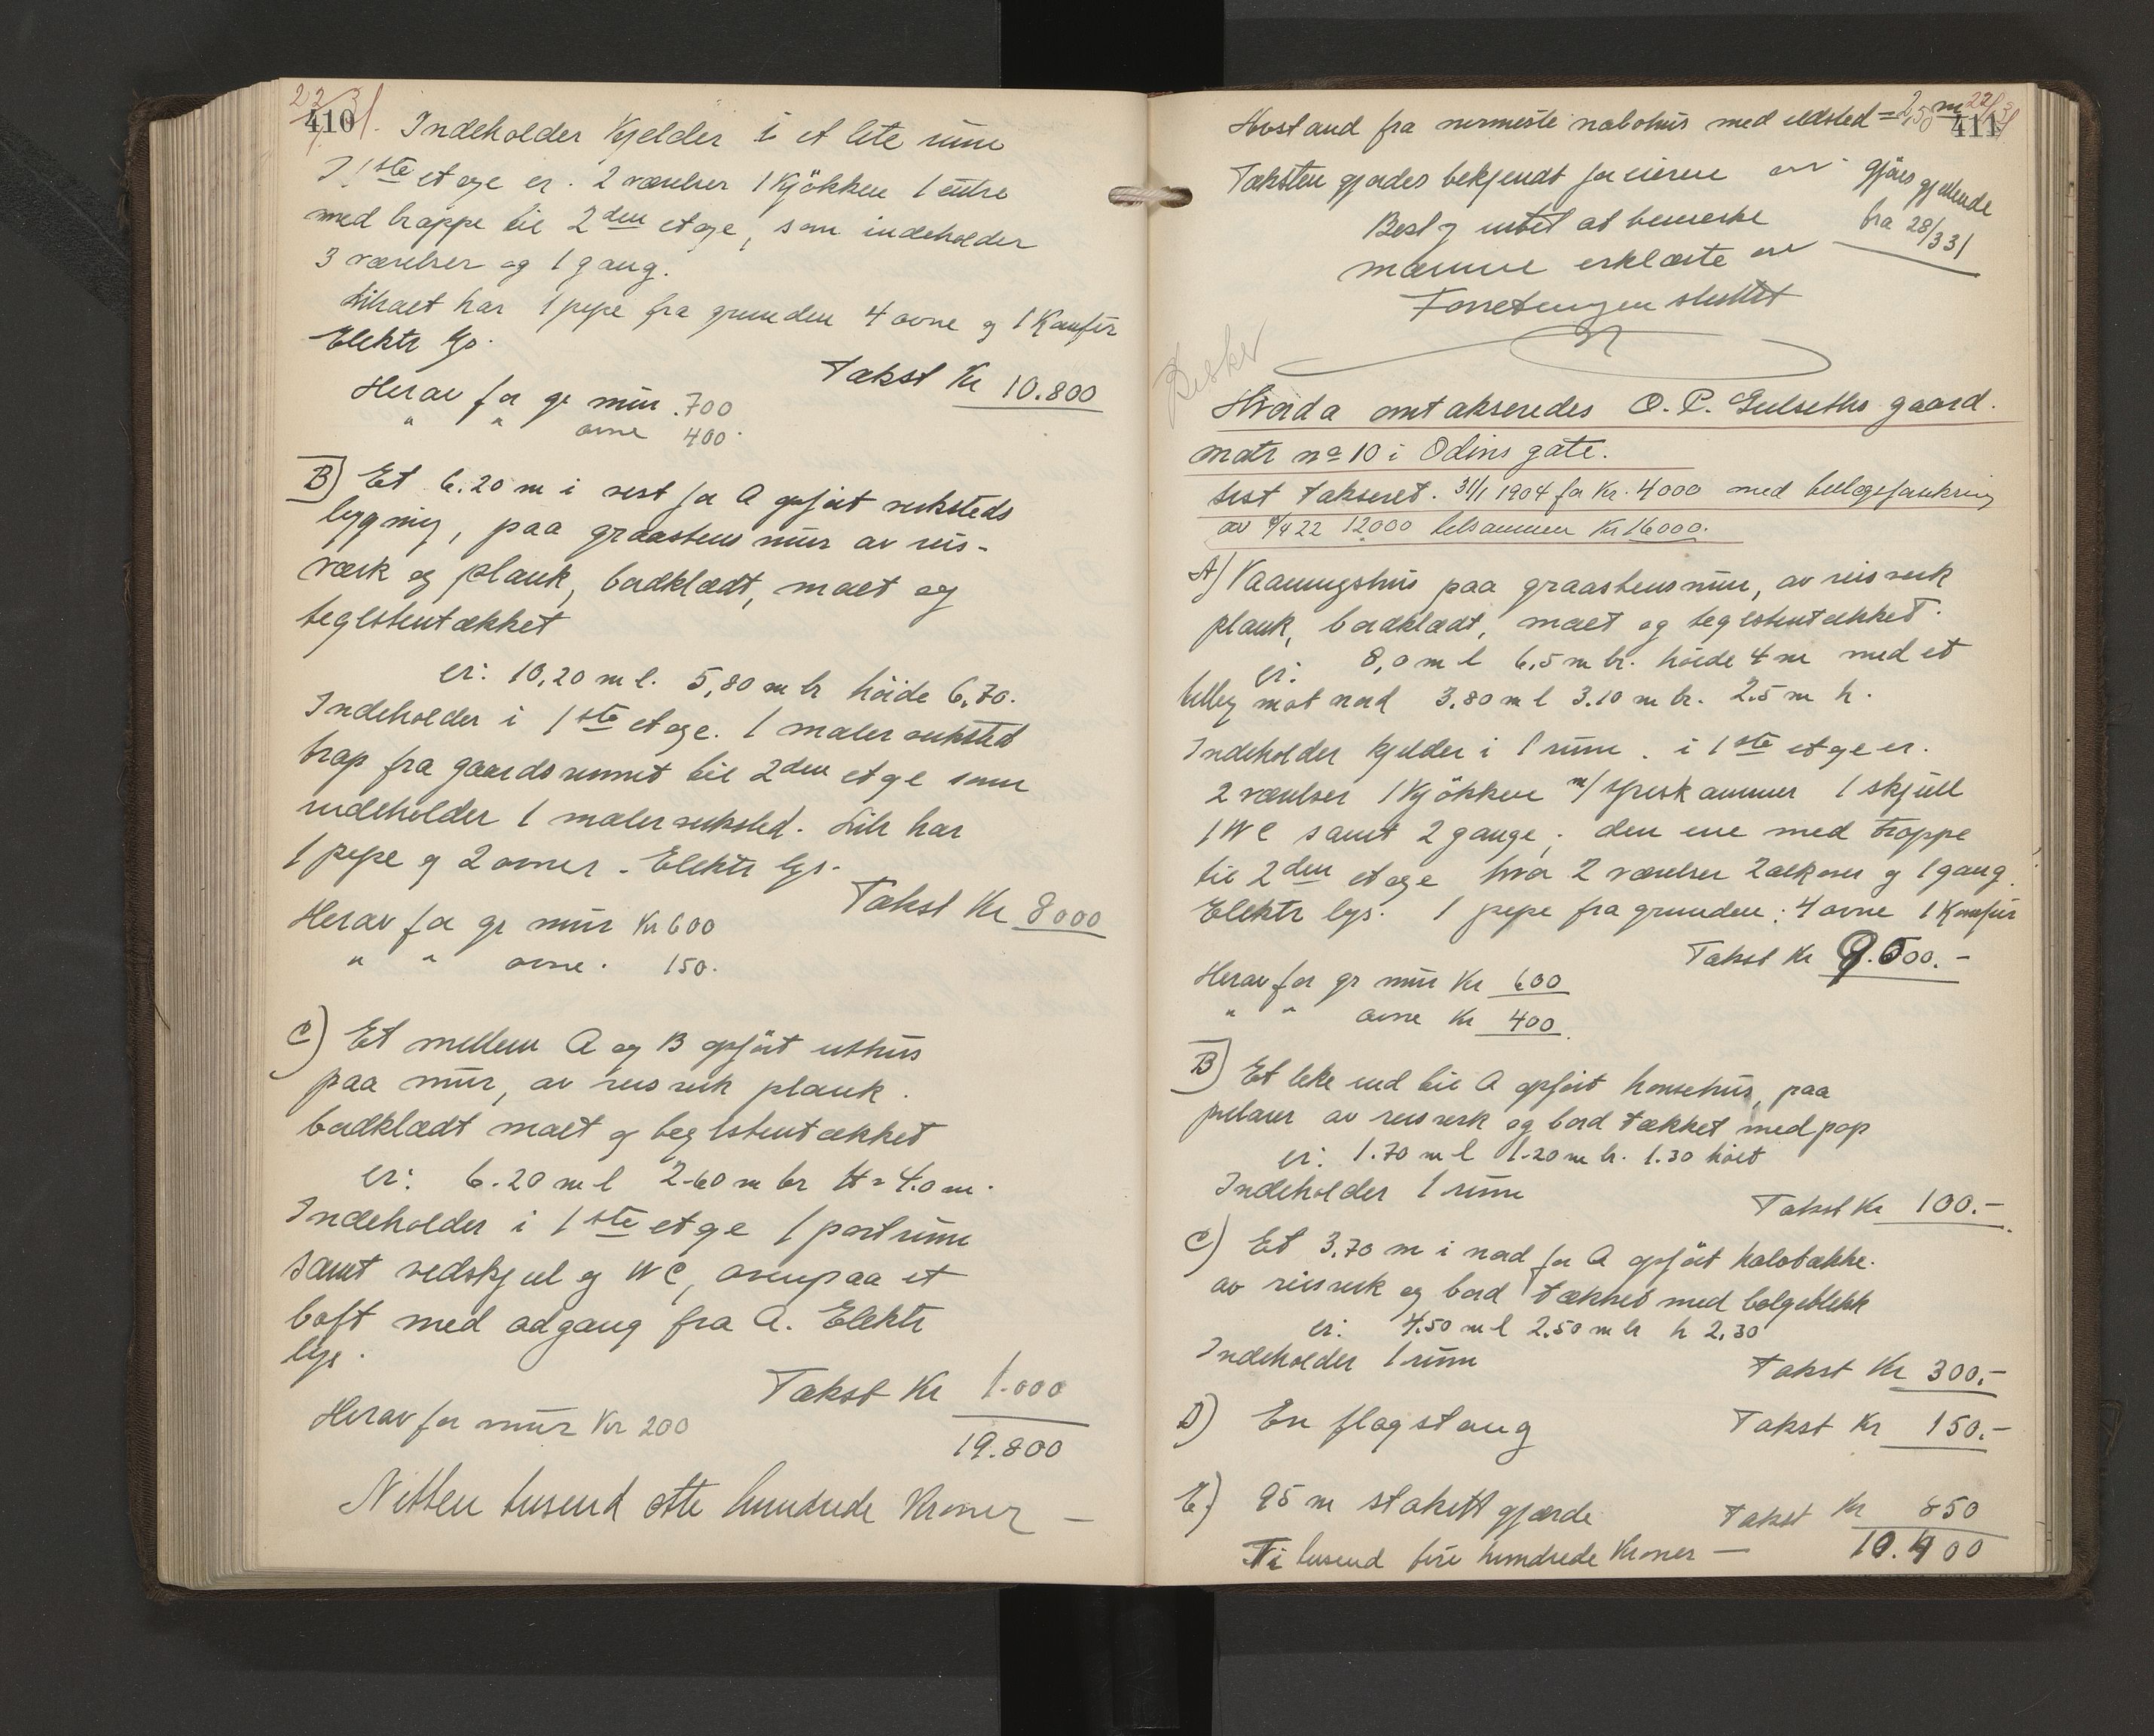 22/3 31.
410
Indeholder kjelder i et lite rum
I 1ste etage er. 2 værelser 1 kjökken 1 entre
med trappe til 2den etage, som indeholder
3 værelser og 1 gang.
Likaet har 1 pipe fra grunden 4 ovne og 1 Komfür
Elektr lys.
Takst Kr 10.800
Herav for gr mür. 700
" " ovne 400.
B) Et 6.20 m i vest for A opfört verksteds
bygning, paa graastens mür av reis-
værk og plank, bordklædt, malt og
teglstentækket
er: 10,20 m l. 5,80 m br höide 6,70.
Indeholder i 1ste etage. 1 malerverksted
trap fra gaardsrumet til 2den etge som
indeholder 1 malerverksted. Lik har
1 pipe og 2 ovner. Elektr lys.
Takst Kr 8000
Herav for gr mür Kr 600
" " ovne. 150.
C) Et mellem A og B opfört uthüs
paa mür, av reisverk plank.
bordklædt malt og teglstentækket
er: 6.20 m l 2.60 m br H = 4.0 m.
Indeholder i 1ste etge 1 portrüm
samt vedskjul og WC, ovenpaa et
loft med adgang fra A. Elektr
lys.
Takst Kr 1.000
Herav for mür Kr 200
19.800
Nitten tusend otte hundrede Kroner —
22/3 31
411
Avstand fra nermeste nabohus med ildsted = 2,50 m
Taksten gjordes bekjendt for eieren
gjöres gjeldende
fra 28/3 31
Best og intet at bemerke
mænnene erklærte
Forretningen sluttet
Hvorda omtakseredes O. P. Gulseths gaard.
matr no 10 i Odins gate.
sist takseret. 31/1 1904 for Kr. 4000 med tillægsforsikring
av 4/4 22 12000 tilsammen Kr 16000.
A) Vaaningshüs paa graastensmür, av reisverk
plank, bordklædt, malt og teglstentækket.
er: 8,0 m l 6,5 m br. höide 4 m med et
tilbyg mot nord 3.80 m l 3.10 m br. 2.5 m h.
Indeholder kjelder i 1 rüm. i 1ste etge er.
2 værelser 1 kjökken m/ spiskammer 1 skjüll
1 WC samt 2 gange; den ene med trappe
til 2den etage hvor 2 værelser 2 alkover og 1 gang.
Elektr lys. 1 pipe fra grunden: 4 ovne 1 Komfür
Takst Kr 9.000.-
Herav for gr mür Kr 600
" " ovne Kr 400.
B) Et like ved til A opfört hönsehüs, paa
pilarer av reisverk og bord tækket med pap
er: 1.70 m l 1.20 m br. 1.30 höit
Indeholder 1 rüm
Takst Kr 100.-
C) Et 3.70 m i nord for A opfört halvtække.
av reisverk og bord tækket med bølgeblekk
er: 4.50 m l 2.50 m br h 2.30
Indeholder 1 rüm
Takst Kr 300.-
D) En flagstang Takst Kr 150.-
E) 95 m stakett gjærde Takst Kr 850
Ti tusend fire hundrede Kroner — 10.400